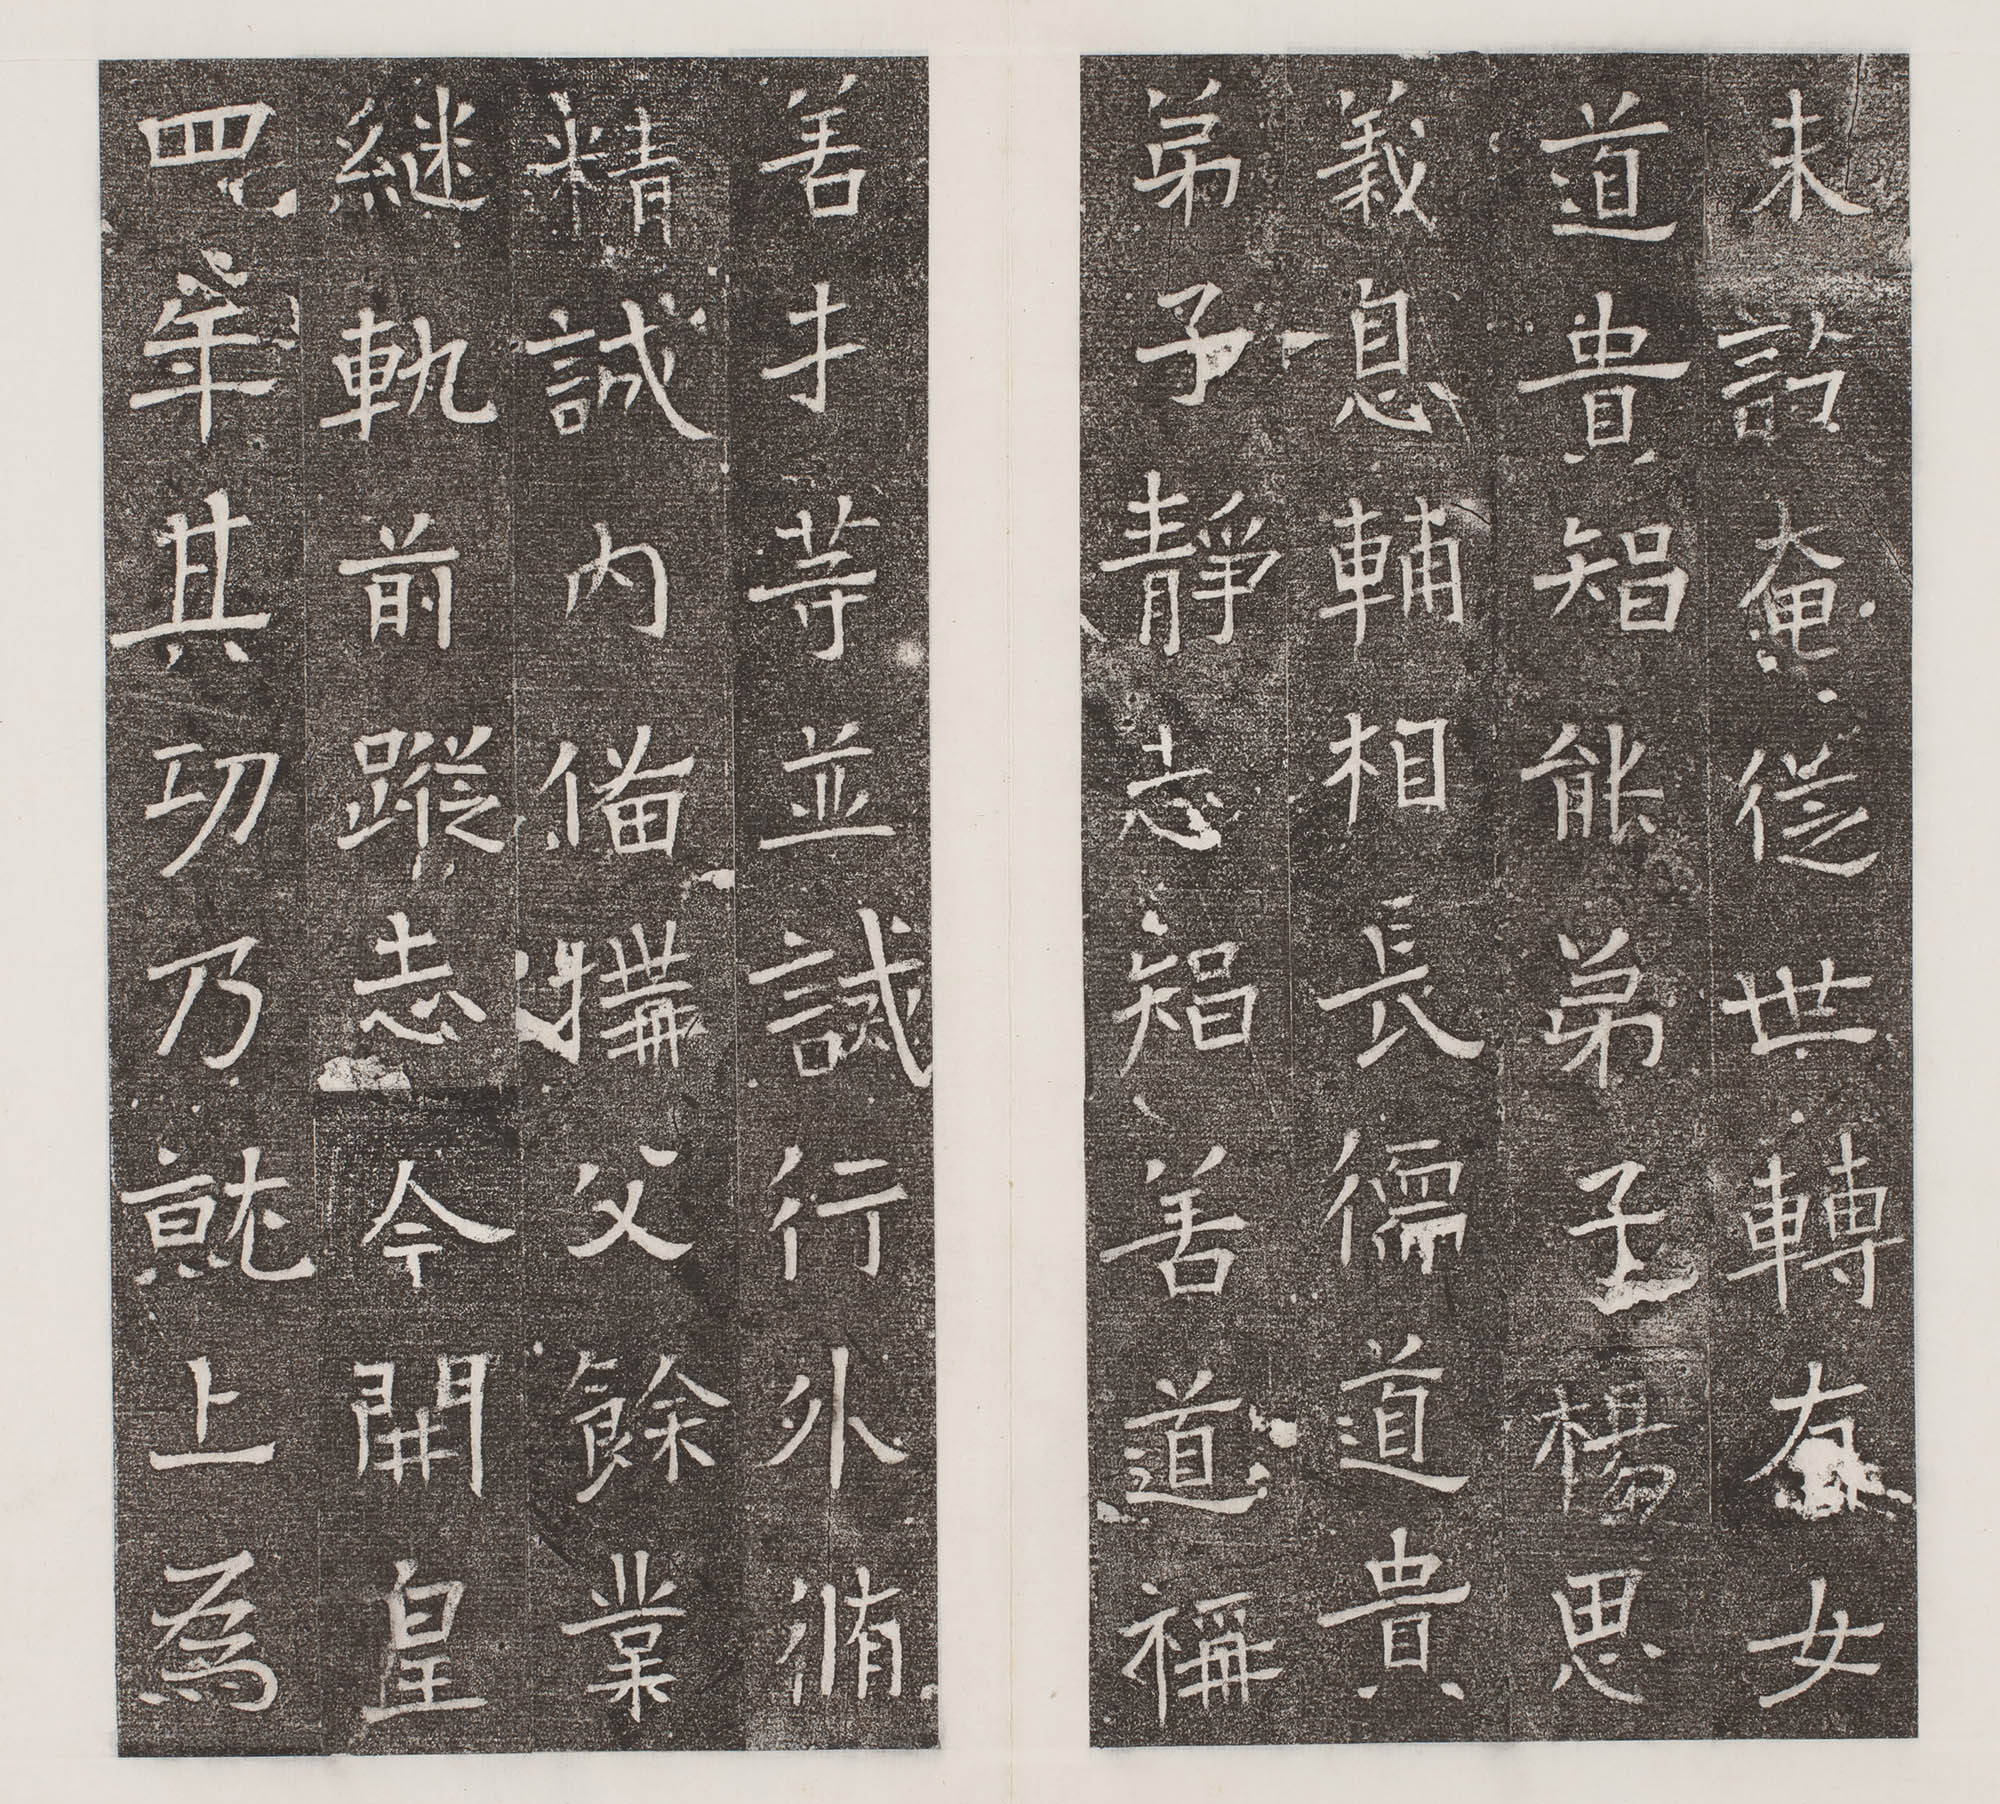 未訖奄從世轉有女
道貴智能弟子楊思
義息輔相長儒道貴
弟子靜志智善道稱
善才等並誡行外脩
精誠內俻構父餘業
継軌前蹤志今開皇
四年其功乃就上為